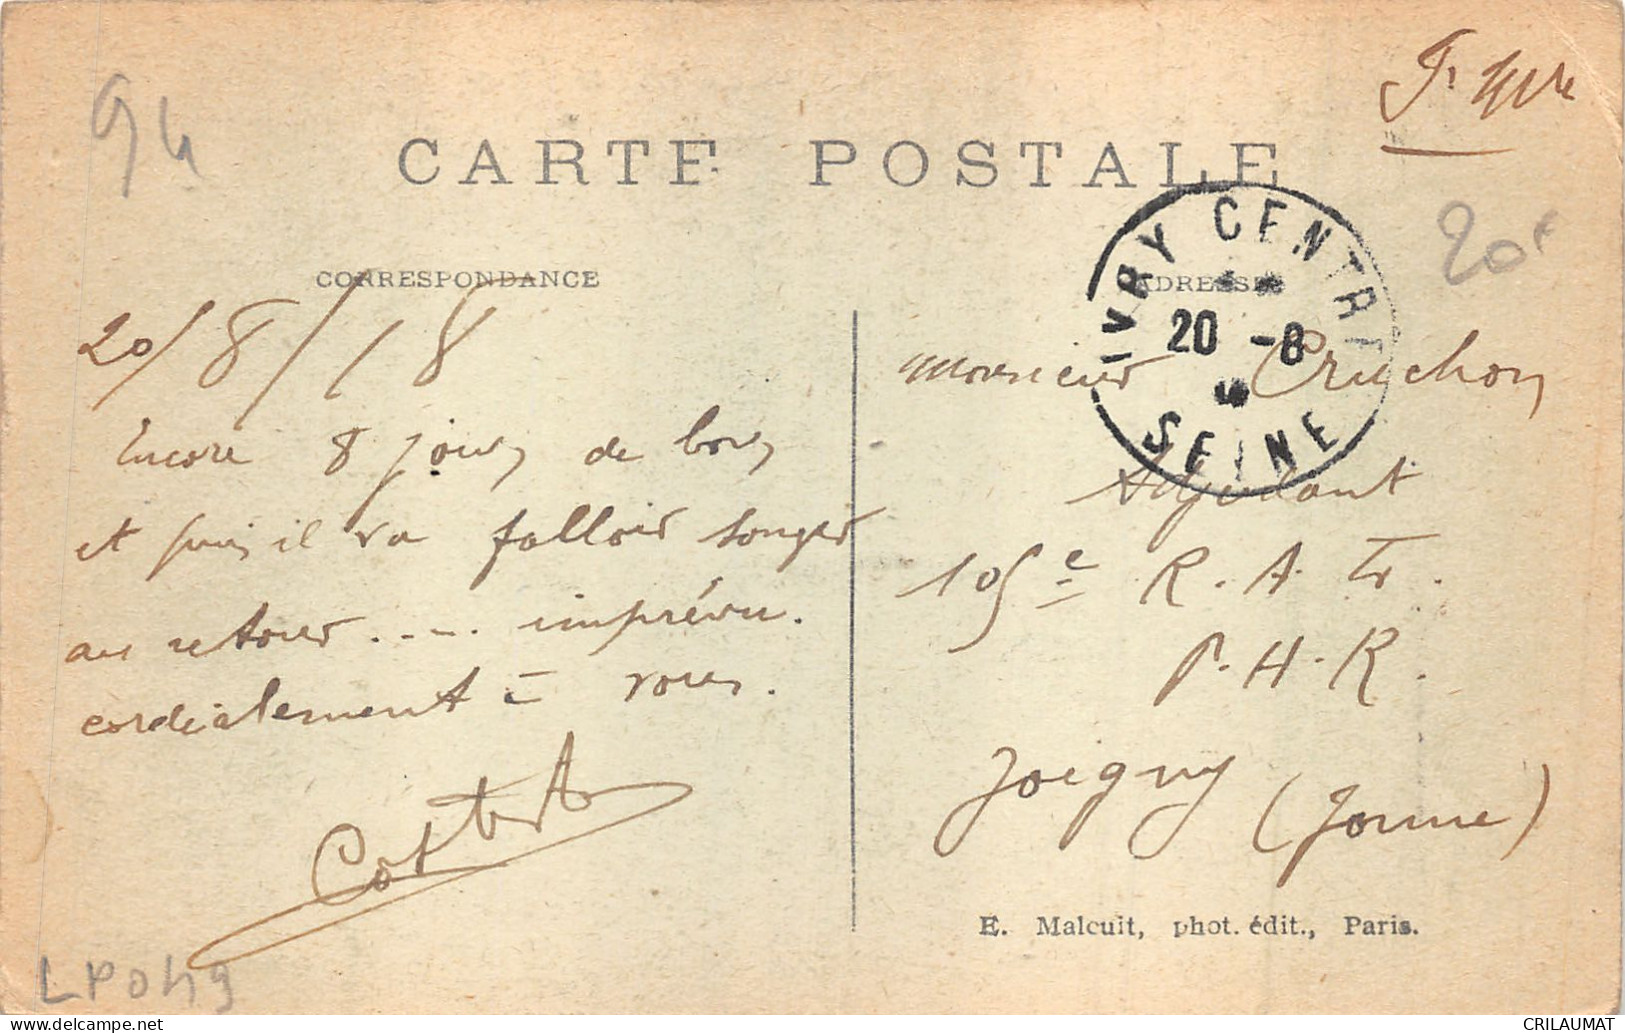 94
CARTE POSTALE
20f
CORRESPONDANCE
20/8/18
Encore 8 jours de bon
et puis il va falloir songer
au retour .... imprévu.
cordialement à vous.
LP049
ADRESSE
IVRY CENTRE
20 -8
SEINE
Monsieur Cruchon
Adjudant
105e R. A. Lr.
P. H. R.
Joigny (Yonne)
E. Malcuit, phot. édit., Paris.
CRILAUMAT